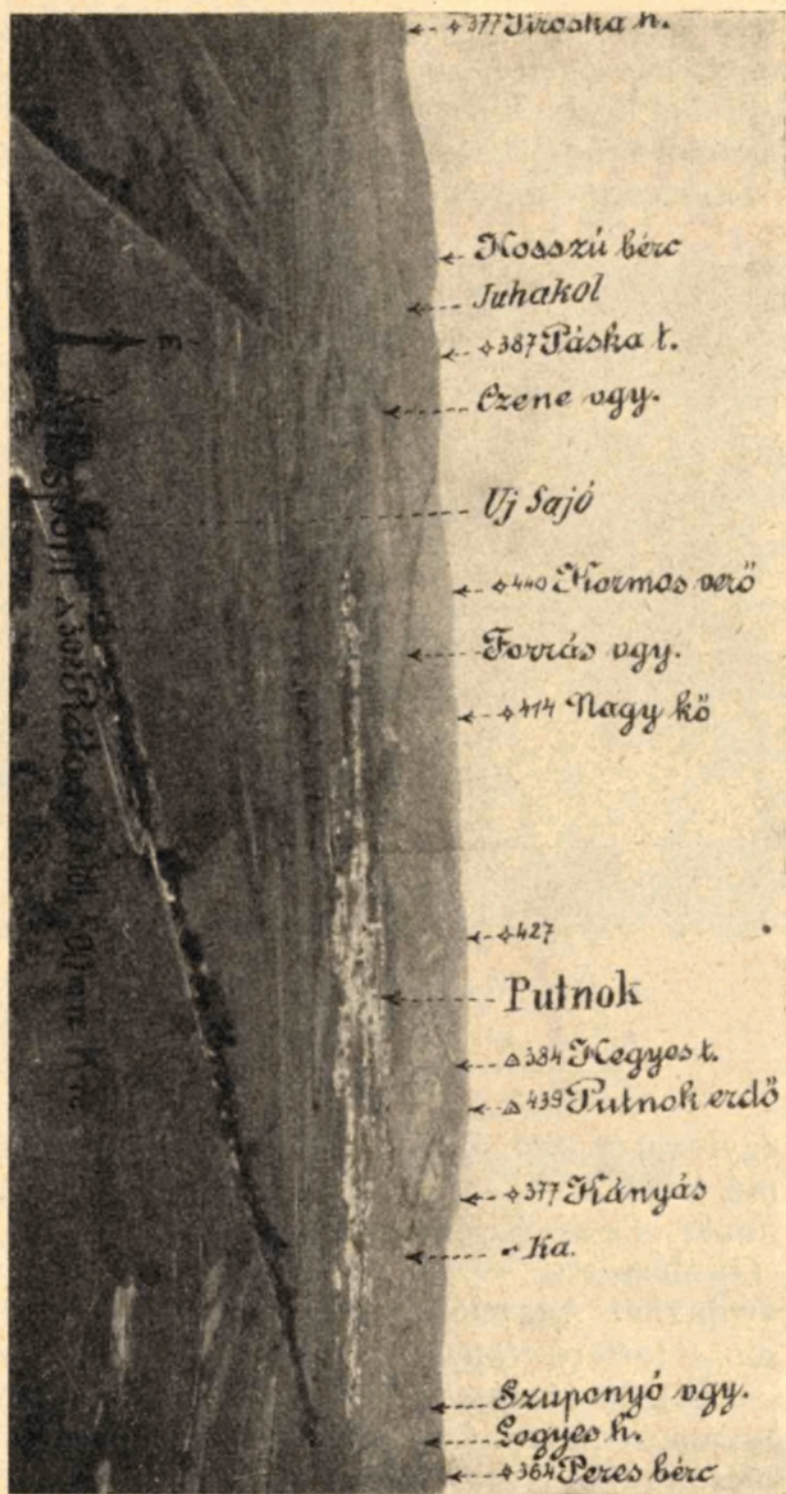 377 Piroska h.
Hosszú bérc
Juhakol
387 Páska t.
Czene vgy.
Uj Sajó
440 Kormos verő
Forrás vgy.
414 Nagy kő
427
Putnok
384 Hegyes t.
439 Putnok erdő
377 Kányás
Ka.
Szuponyó vgy.
364 Peres bérc
É